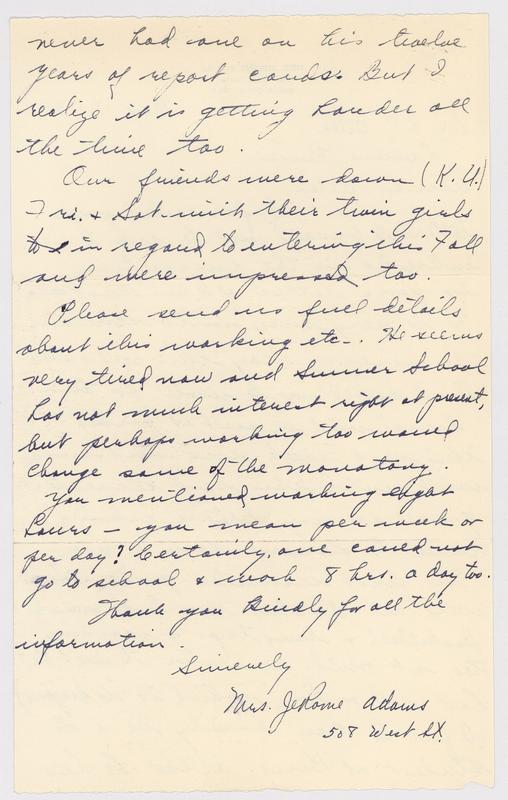 never had one on his twelve
years of report cards. But I
realize it is getting harder all
the time too.
Our friends were down (K.U.)
Fri. & Sat. with their twin girls
in regard to entering this Fall
and were impressed too.
Please send us full details
about this working etc-. He seems
very tired now and Summer School
has not much interest right at present,
but perhaps working too would
change some of the monotony.
You mentioned working eight
hours - you mean per week or
per day? Certainly, one could not
go to school & work 8 hrs. a day too.
Thank you kindly for all the
information.
Sincerely
Mrs. JeRome Adams
508 West St.